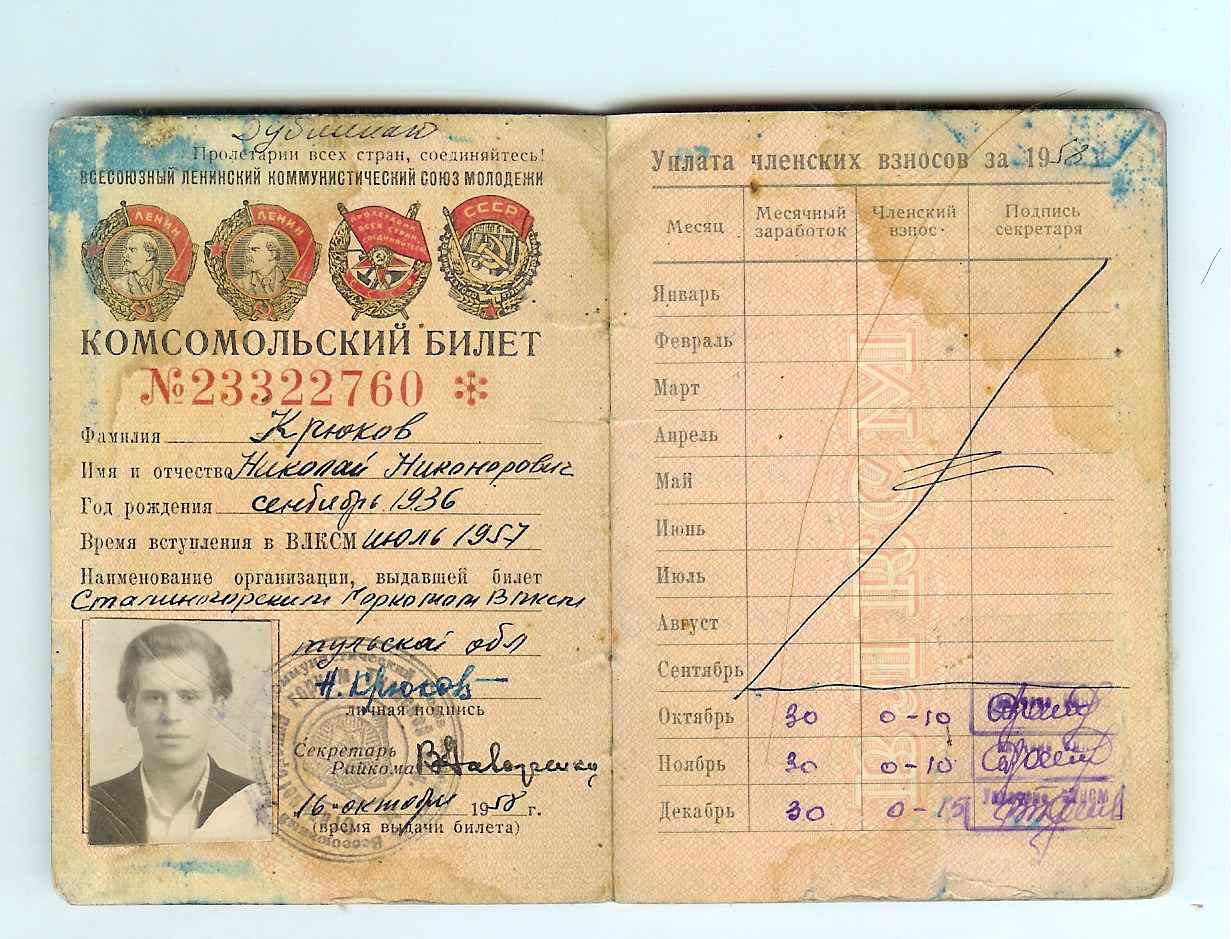 Дубликат
Пролетарии всех стран, соединяйтесь!
ВСЕСОЮЗНЫЙ ЛЕНИНСКИЙ КОММУНИСТИЧЕСКИЙ СОЮЗ МОЛОДЕЖИ
ЛЕНИН ЛЕНИН ПРОЛЕТАРИИ ВСЕХ СТРАН СОЕДИНЯЙТЕСЬ СССР
КОМСОМОЛЬСКИЙ БИЛЕТ
№23322760
Фамилия Крюков
Имя и отчество Николай Никонорович
Год рождения сентябрь 1936
Время вступления в ВЛКСМ июль 1957
Наименование организации, выдавшей билет
Сталиногорский Горком ВЛКСМ
тульской обл
Н. Крюков
личная подпись
Секретарь
Райкома
16 октября 1958 г.
(время выдачи билета)
Уплата членских взносов за 1958 г.
Месяц Месячный заработок Членский взнос Подпись секретаря
Январь
Февраль
Март
Апрель
Май
Июнь
Июль
Август
Сентябрь
Октябрь 30 0-10
Ноябрь 30 0-10
Декабрь 30 0-15
ВЛКСМ